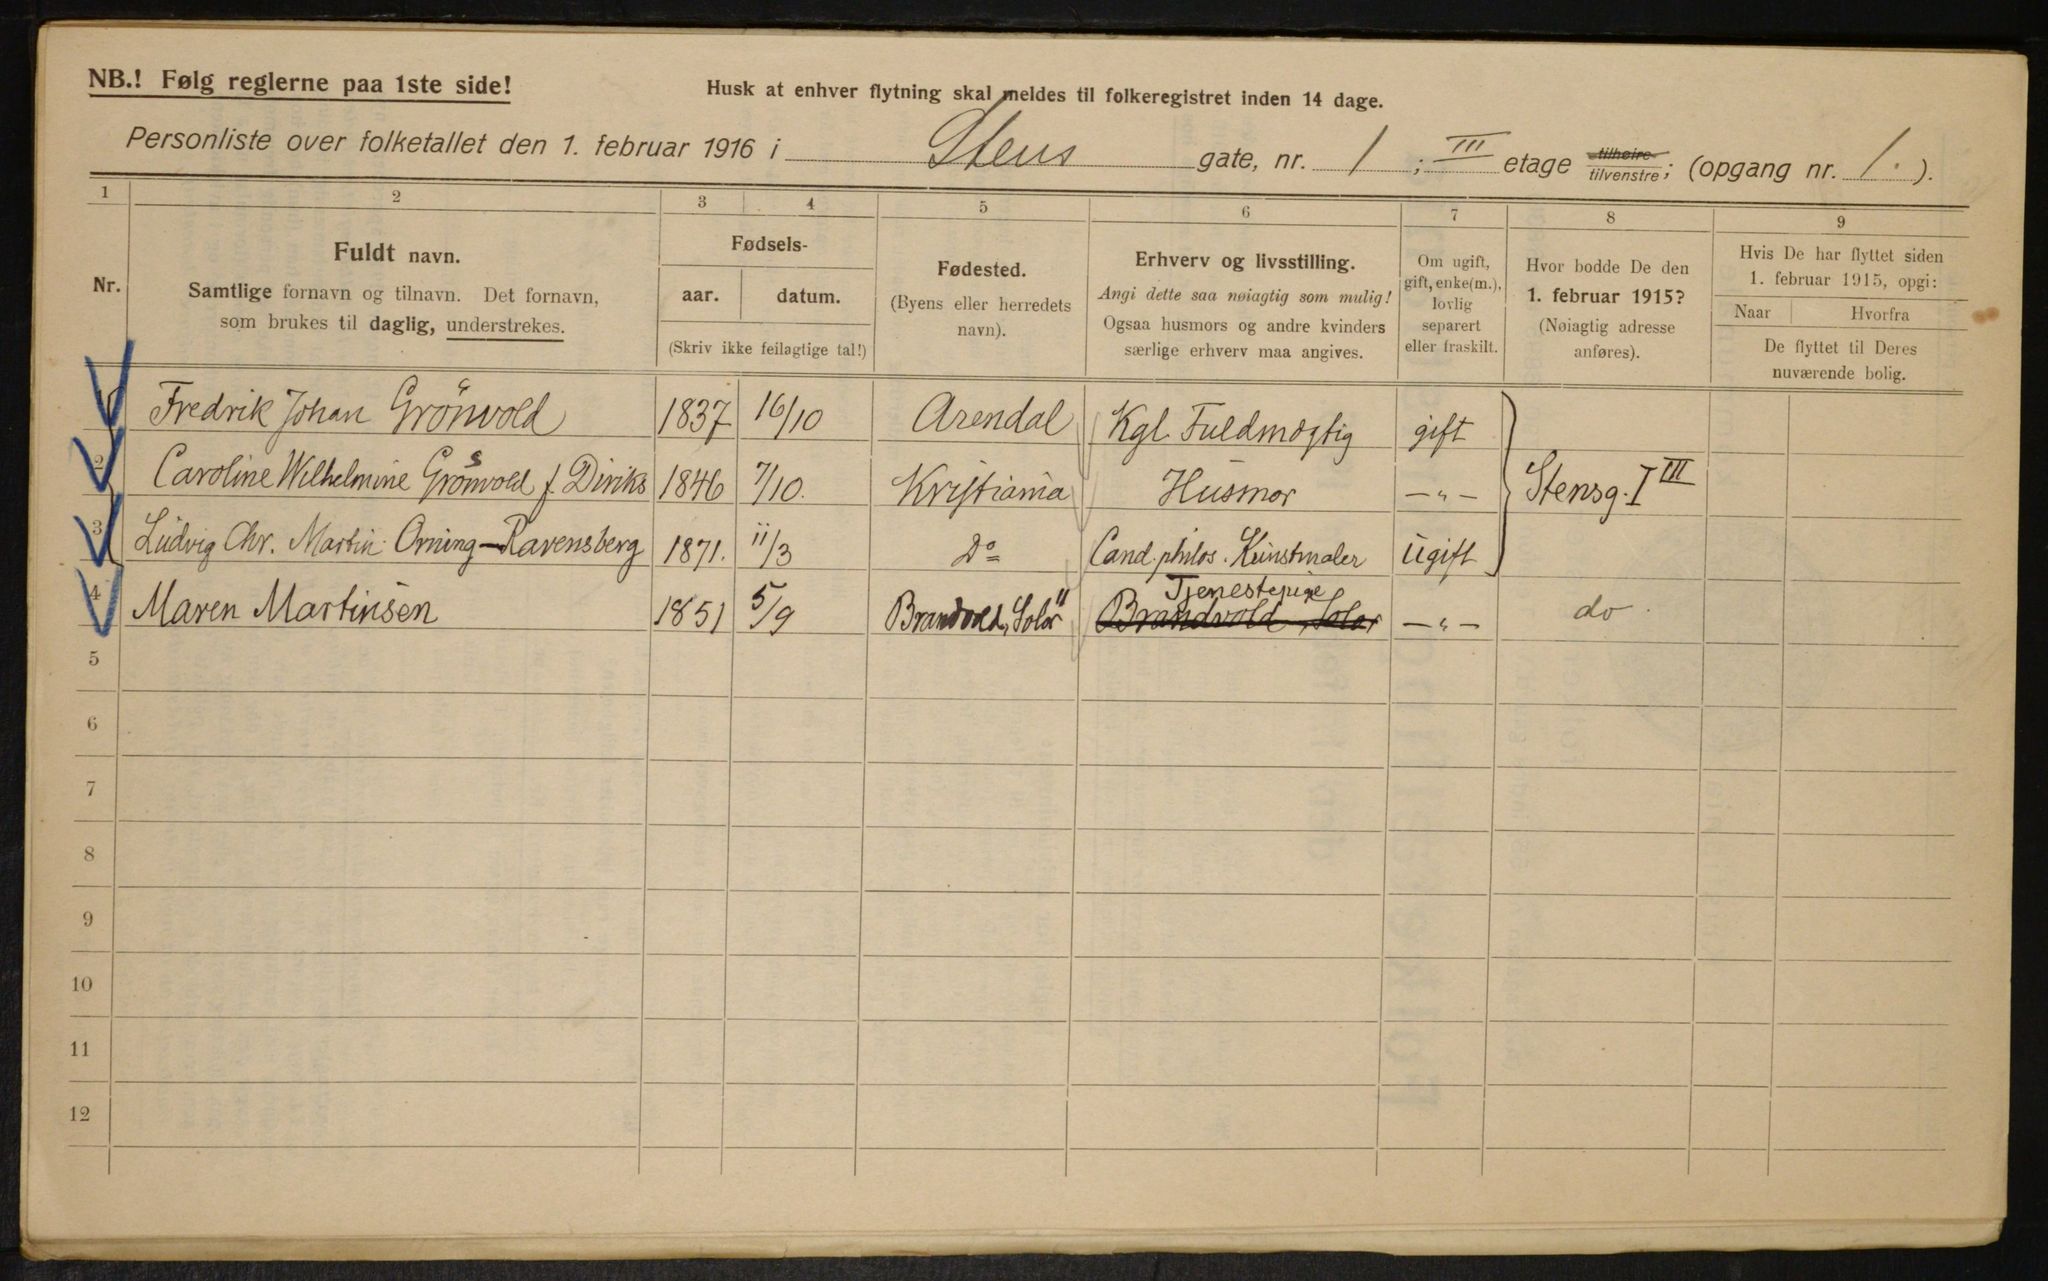 NB.! Følg reglerne paa 1ste side!
Husk at enhver flytning skal meldes til folkeregistret inden 14 dage.
Personliste over folketallet den 1. februar 1916 i Stens gate, nr. 1 ; III etage tilhøire tilvenstre; (opgang nr. 1. ).
1 2 3 4 5 6 7 8 9
Nr.
Fuldt navn.
Samtlige fornavn og tilnavn. Det fornavn,
som brukes til daglig, understrekes.
Fødsels-
aar. datum.
(Skriv ikke feilagtige tal!)
Fødested.
(Byens eller herredets
navn).
Erhverv og livsstilling.
Angi dette saa nøiagtig som mulig!
Ogsaa husmors og andre kvinders
særlige erhverv maa angives.
Om ugift,
gift, enke(m.),
lovlig
separert
eller fraskilt.
Hvor bodde De den
1. februar 1915?
(Nøiagtig adresse
anføres).
Hvis De har flyttet siden
1. februar 1915, opgi:
Naar Hvorfra
De flyttet til Deres
nuværende bolig.
Fredrik Johan Grönvold 1837 16/10 Arendal Kgl. Fuldmægtig gift
2 Caroline Wilhelmine Grönvold f. Diriks 1846 7/10. Kristiania Husmor -„- Stensg. I III
3 Ludvig Chr. Martin Orning-Ravensberg 1871. 11/3 Do Cand. philos. Kunstmaler Ugift
4 Maren Martinsen 1851 5/9 Brandvold, Solør Tjenestepige Brandvold, Solør -„- do
5
6
7
8
9
10
11
12